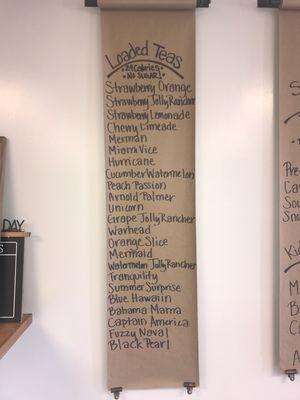 Loaded Teas
•24 Calories•
•No Sugar!
Strawberry Orange
Strawberry Jolly Rancher
Strawberry Lemonade
Cherry Limeade
Merman
Miami Vice
Hurricane
Cucumber Watermelon
Peach Passion
Arnold Palmer
Unicorn
Grape Jolly Rancher
Warhead
Orange Slice
Mermaid
Watermelon Jolly Rancher
Tranquility
Summer Surprise
Blue Hawaiin
Bahama Mama
Captain America
Fuzzy Naval
Black Pearl
DAY